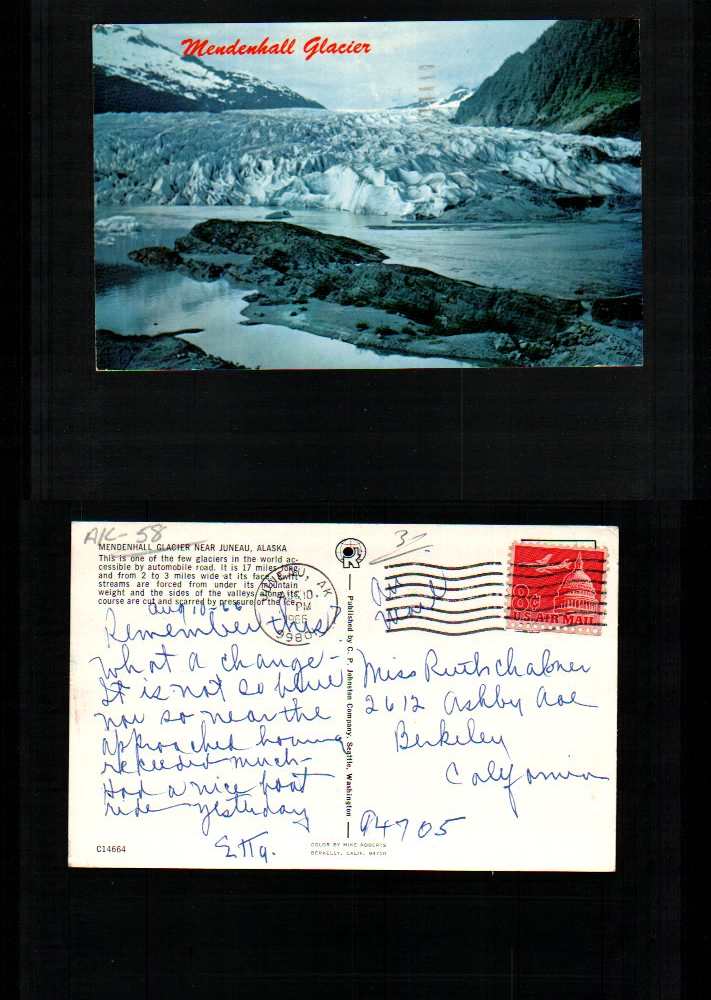 Mendenhall Glacier
AK-58
3-
MENDENHALL GLACIER NEAR JUNEAU, ALASKA
This is one of the few glaciers in the world ac-
cessible by automobile road. It is 17 miles long
and from 2 to 3 miles wide at its face. Swift
streams are forced from under its mountain
weight and the sides of the valleys along its
course are cut and scarred by pressure of the ice.
Aug 10-66
Remember this?
What a change-
It is not so blue
nor so near the
approached having
receeded much-
Had a nice boat
ride yesterday
Etta.
C14664
Published by C. P. Johnston Company, Seattle, Washington
COLOR BY MIKE ROBERTS
BERKELEY, CALIF. 94710
JUNEAU, AK
AUG 10
PM
1966
Air
Mail
8¢
U.S. AIR MAIL
Miss Ruth Chabner
2612 Ashby Ave
Berkeley
California
94705